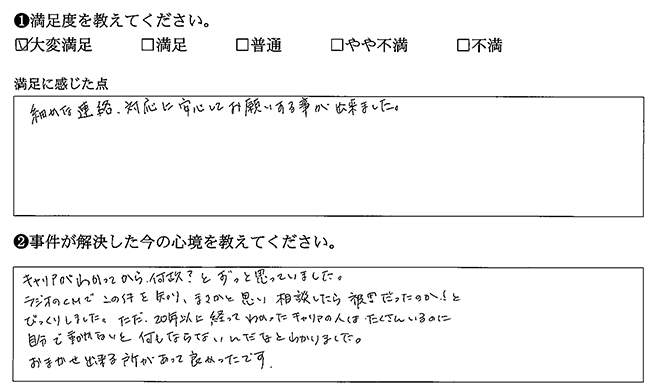 ❶満足度を教えてください。
☑大変満足 □満足 □普通 □やや不満 □不満
満足に感じた点
細めな連絡、対応に安心してお願いする事が出来ました。
❷事件が解決した今の心境を教えてください。
キャリアがわかってから、何故？とずっと思っていました。
ラジオのCMでこの件を知り、まさかと思い相談したら被害だったのか！と
びっくりしました。ただ、20年以上経ってわかったキャリアの人はたくさんいるのに
自分で動かないと何もならないんだなとわかりました。
おまかせ出来る所があって良かったです。